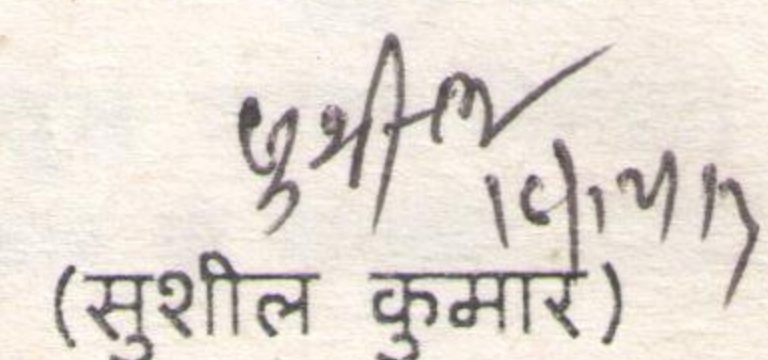 सुशील
(सुशील कुमार)